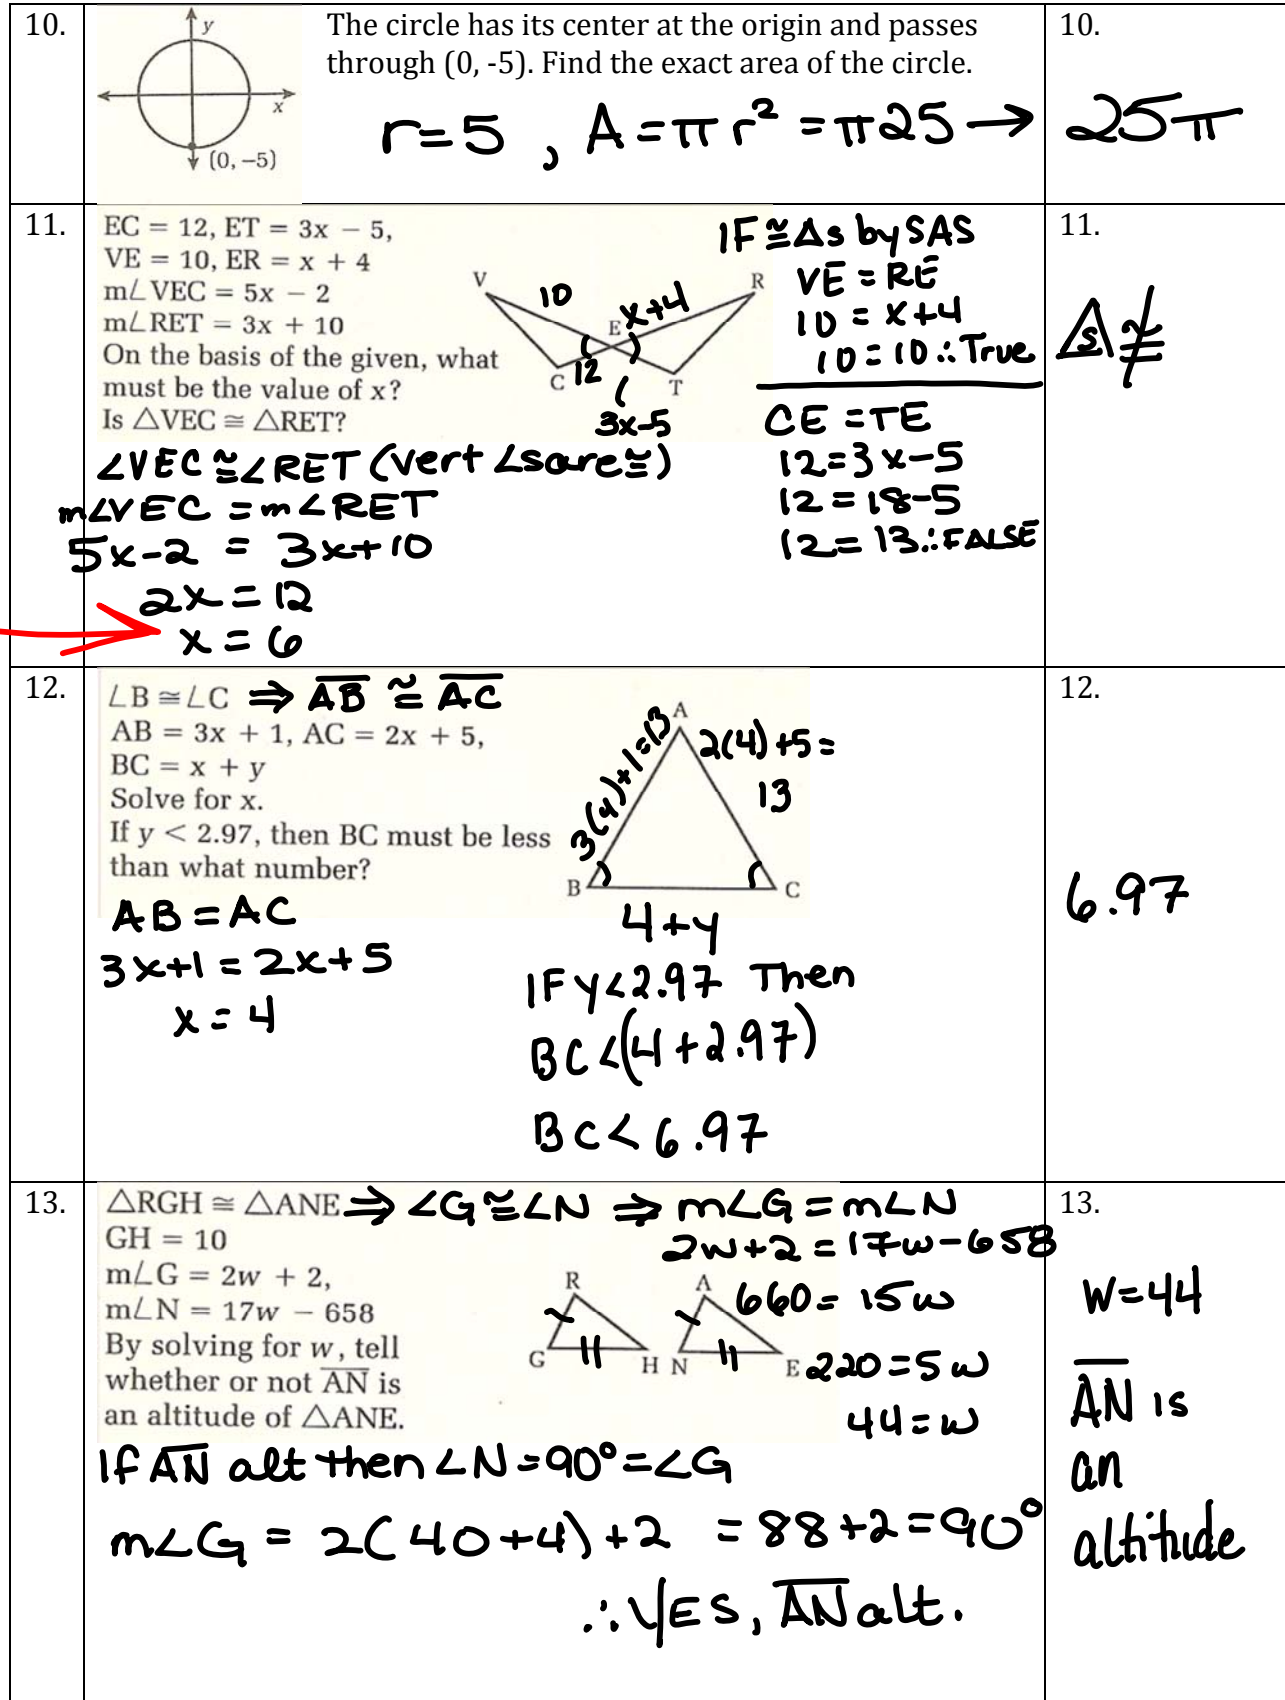 10.
y
x
(0, −5)
The circle has its center at the origin and passes
through (0, -5). Find the exact area of the circle.
r=5 , A=πr² =π25→
10.
25π
11.
EC = 12, ET = 3x − 5,
VE = 10, ER = x + 4
m∠VEC = 5x − 2
m∠RET = 3x + 10
On the basis of the given, what
must be the value of x?
Is △VEC ≅ △RET?
V
R
E
C
T
10
x+4
12
3x-5
IF ≅ △s by SAS
VE = RE
10 = x+4
10=10 ∴ True
CE = TE
12=3x-5
12=18-5
12=13 ∴ FALSE
∠VEC ≅ ∠RET (vert ∠s are ≅)
m∠VEC = m∠RET
5x-2 = 3x+10
2x=12
x=6
11.
△s ≇
12.
∠B ≅ ∠C ⇒ A̅B̅ ≅ A̅C̅
AB = 3x + 1, AC = 2x + 5,
BC = x + y
Solve for x.
If y < 2.97, then BC must be less
than what number?
A
B
C
3(4)+1=13
2(4)+5=
13
4+y
AB=AC
3x+1=2x+5
x=4
IF y<2.97 Then
BC<(4+2.97)
BC<6.97
12.
6.97
13.
△RGH ≅ △ANE ⇒ ∠G≅∠N ⇒ m∠G=m∠N
GH = 10
m∠G = 2w + 2,
m∠N = 17w − 658
By solving for w, tell
whether or not A̅N̅ is
an altitude of △ANE.
2w+2=17w-658
660=15w
220=5w
44=w
R
G
H
A
N
E
If A̅N̅ alt then ∠N=90°=∠G
m∠G = 2(40+4)+2 =88+2=90°
∴ YES, A̅N̅ alt.
13.
W=44
A̅N̅ is
an
altitude